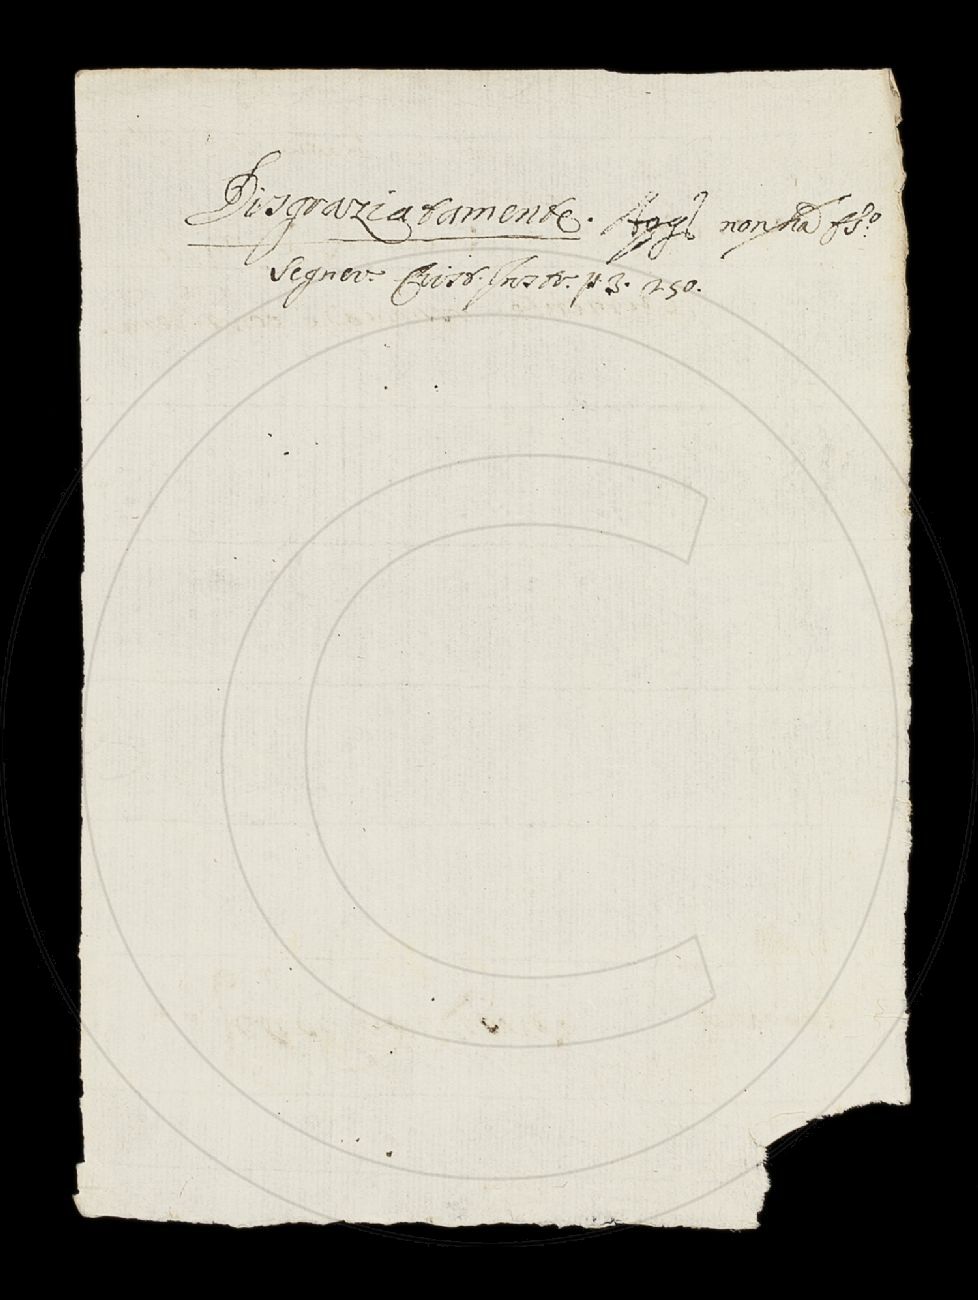 Disgraziatamente. Agg. non ha ess.o
Segner. Crist. Instr. p. 3. 250.